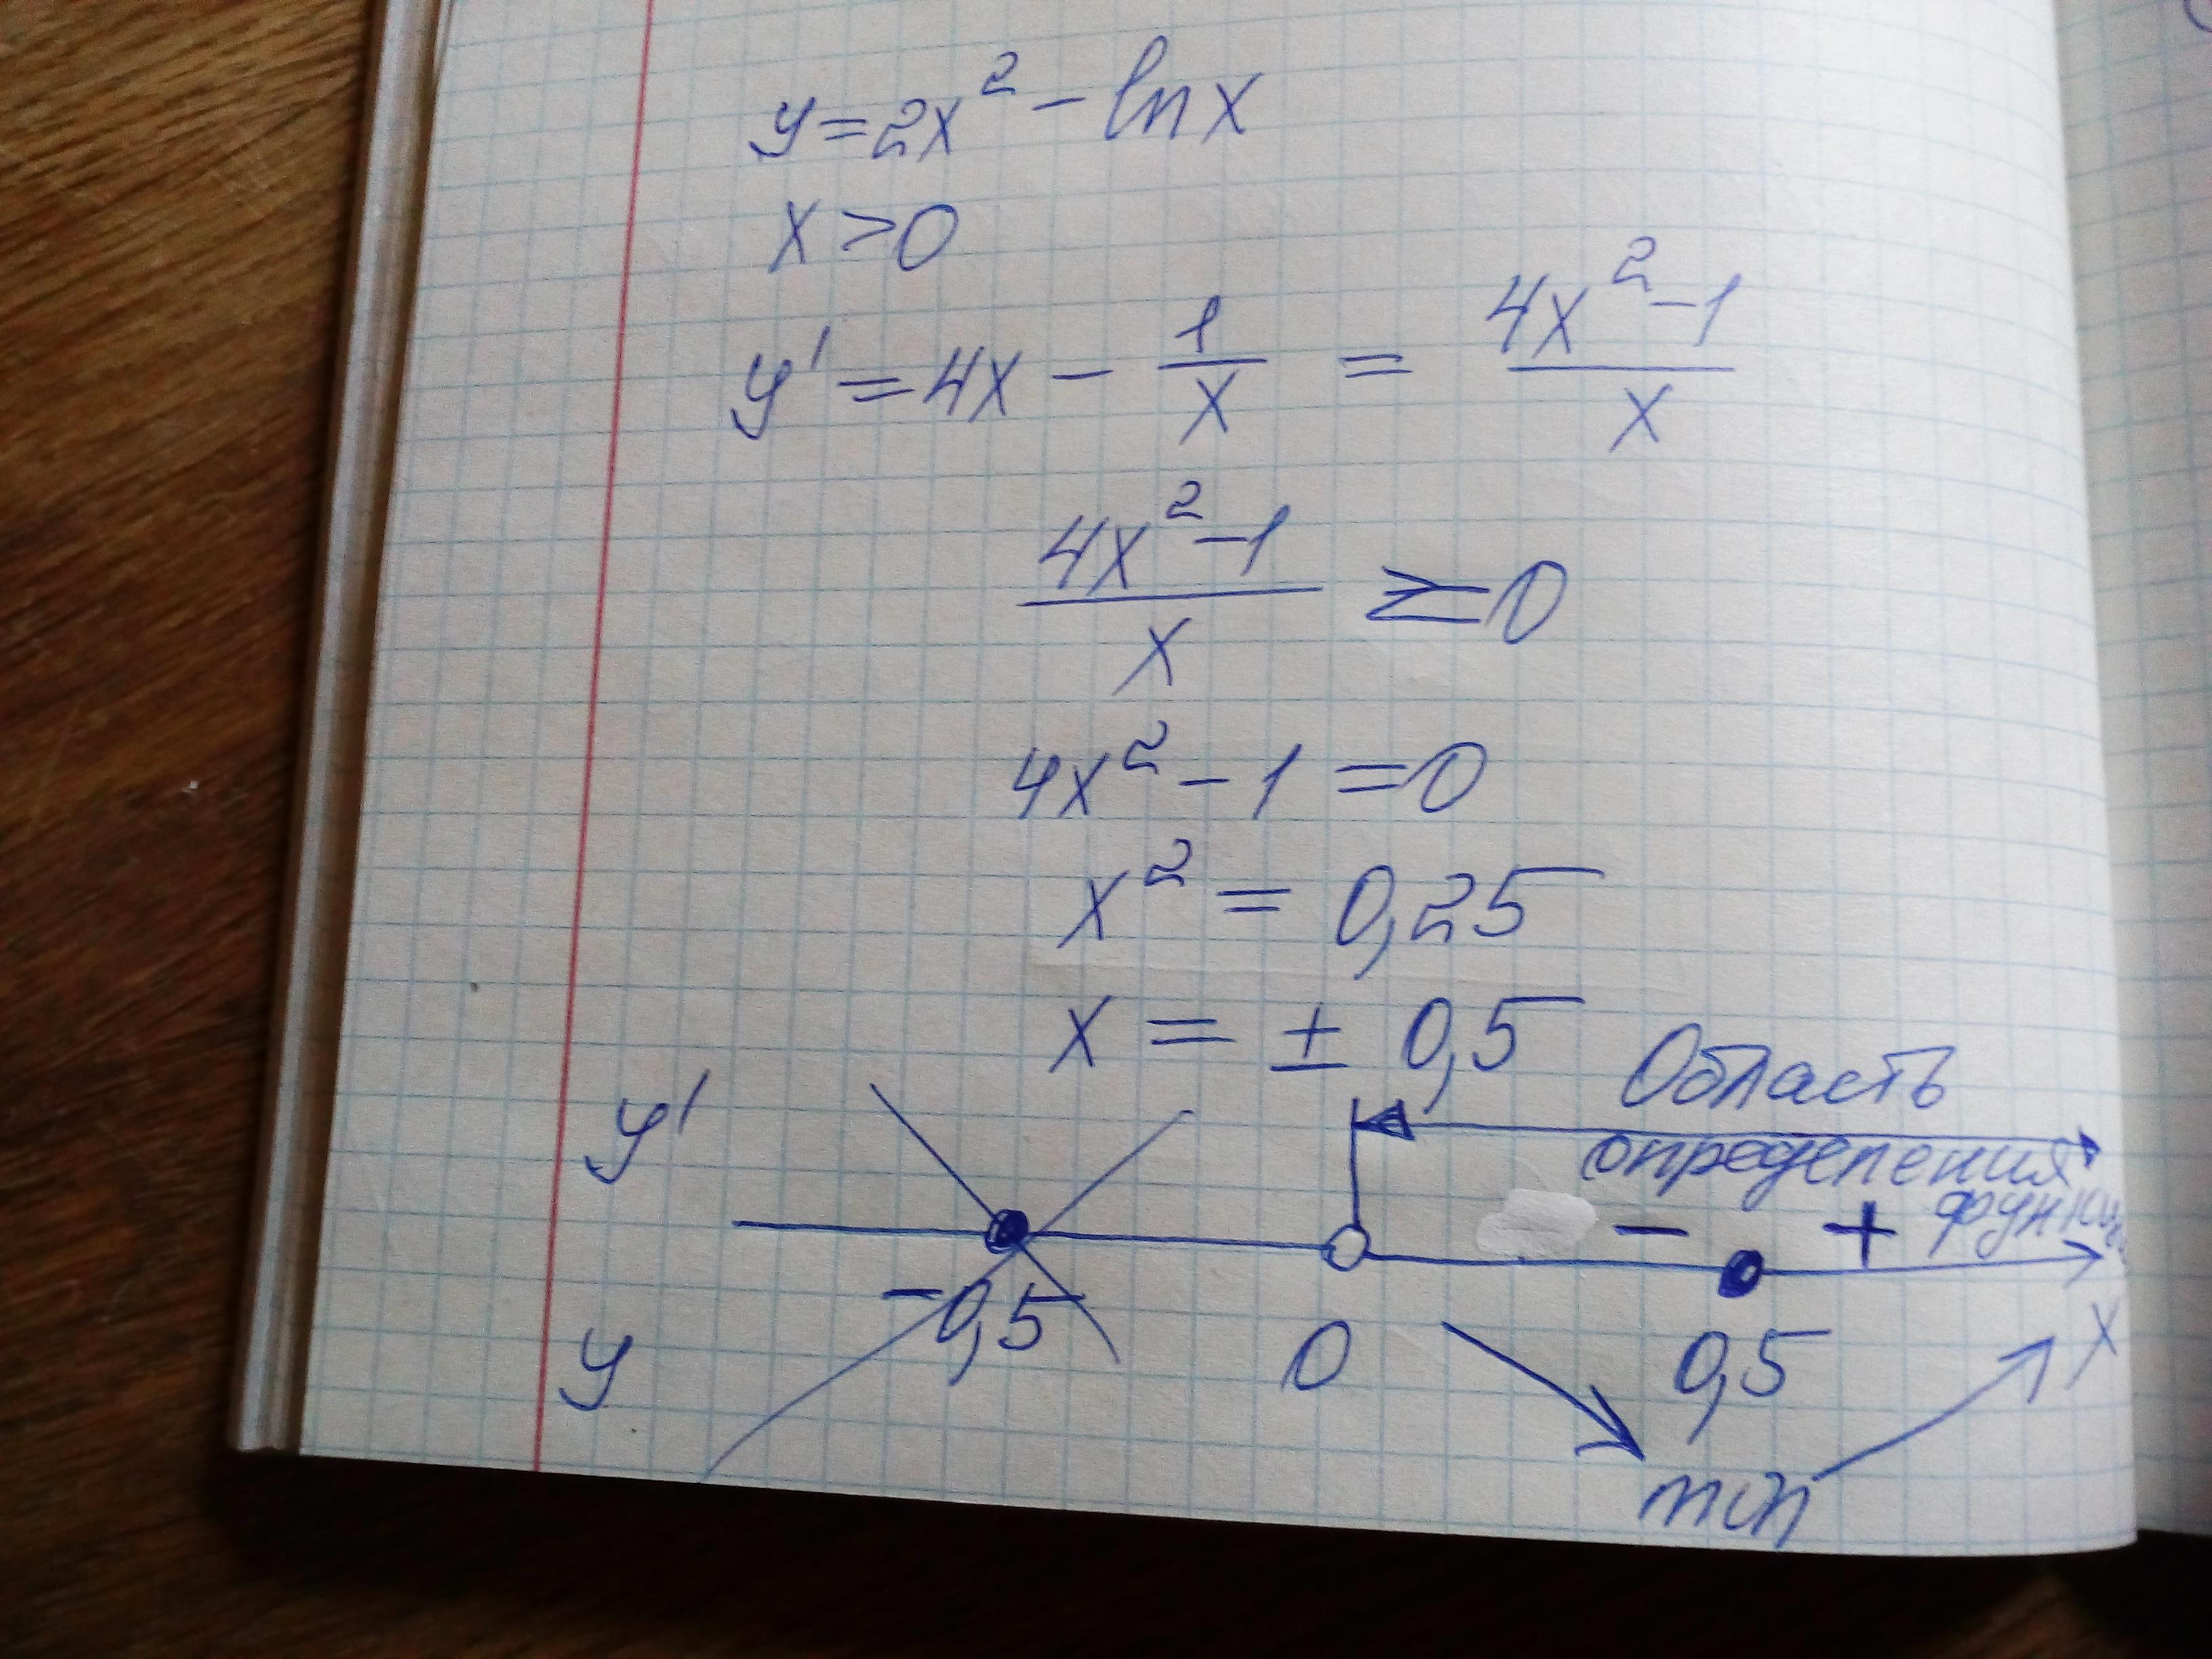 y = 2x² - ln x
x > 0
y' = 4x - 1/x = (4x² - 1)/x
(4x² - 1)/x ≥ 0
4x² - 1 = 0
x² = 0,25
x = ± 0,5
Область
определения
функции
y'
- +
-0,5 0 0,5 x
y
min